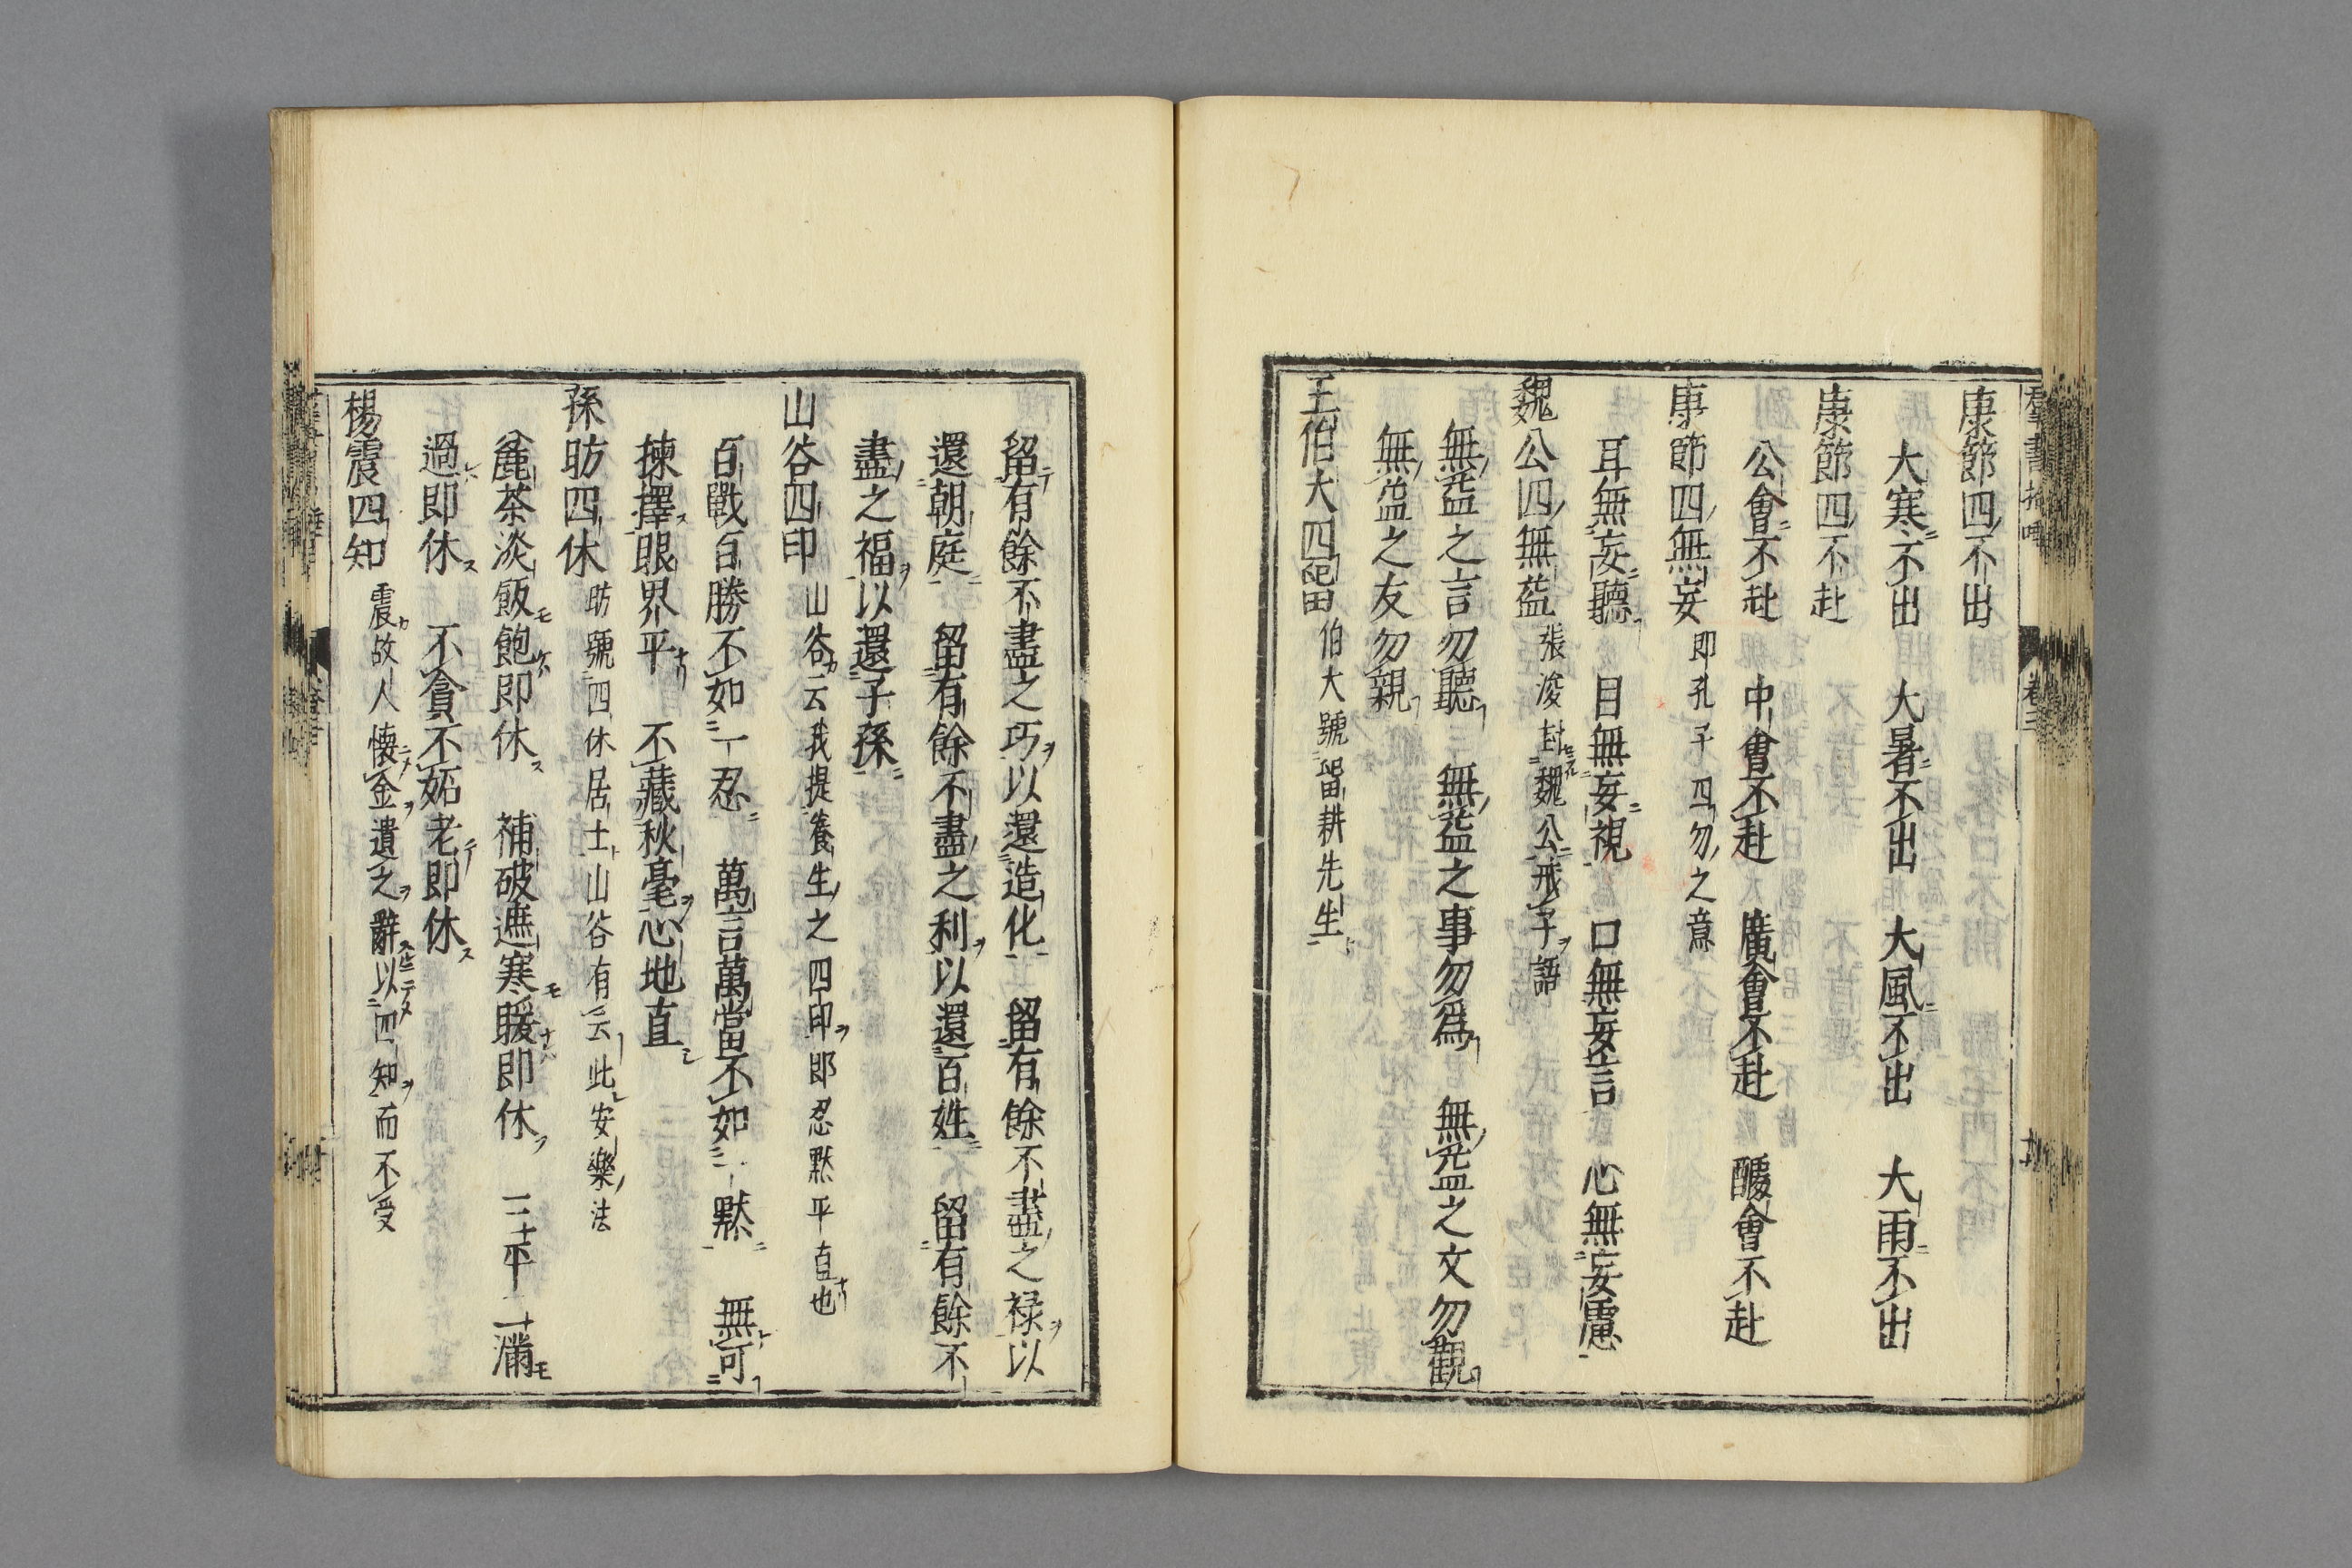 康節四不出
大寒不出　大暑不出　大風不出　大雨不出
康節四不赴
公會不赴　中會不赴　廣會不赴　醵會不赴
康節四無妄　即孔子四勿之意
耳無妄聽　目無妄視　口無妄言　心無妄慮
魏公四無益　張浚封魏公戒子語
無益之言勿聽　無益之事勿爲　無益之文勿觀
無益之友勿親
王伯大四留　伯大號留耕先生
留有餘不盡之巧以還造化　留有餘不盡之禄以
還朝庭　留有餘不盡之利以還百姓　留有餘不
盡之福以還子孫
山谷四印　山谷云我提養生之四印即忍黙平直也
百戰百勝不如一忍　萬言萬當不如一黙　無可
揀擇眼界平　不藏秋毫心地直
孫昉四休　昉號四休居士山谷有云此安樂法
麁茶淡飯飽即休　補破遮寒暖即休　三平二滿
過即休　不貪不妬老即休
楊震四知　震故人懐金遺之辭以四知而不受